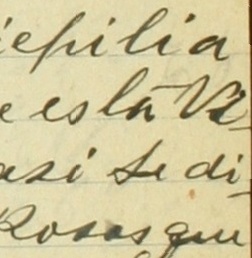 iepilia
e está Vi-
asi se di-
Rosas que